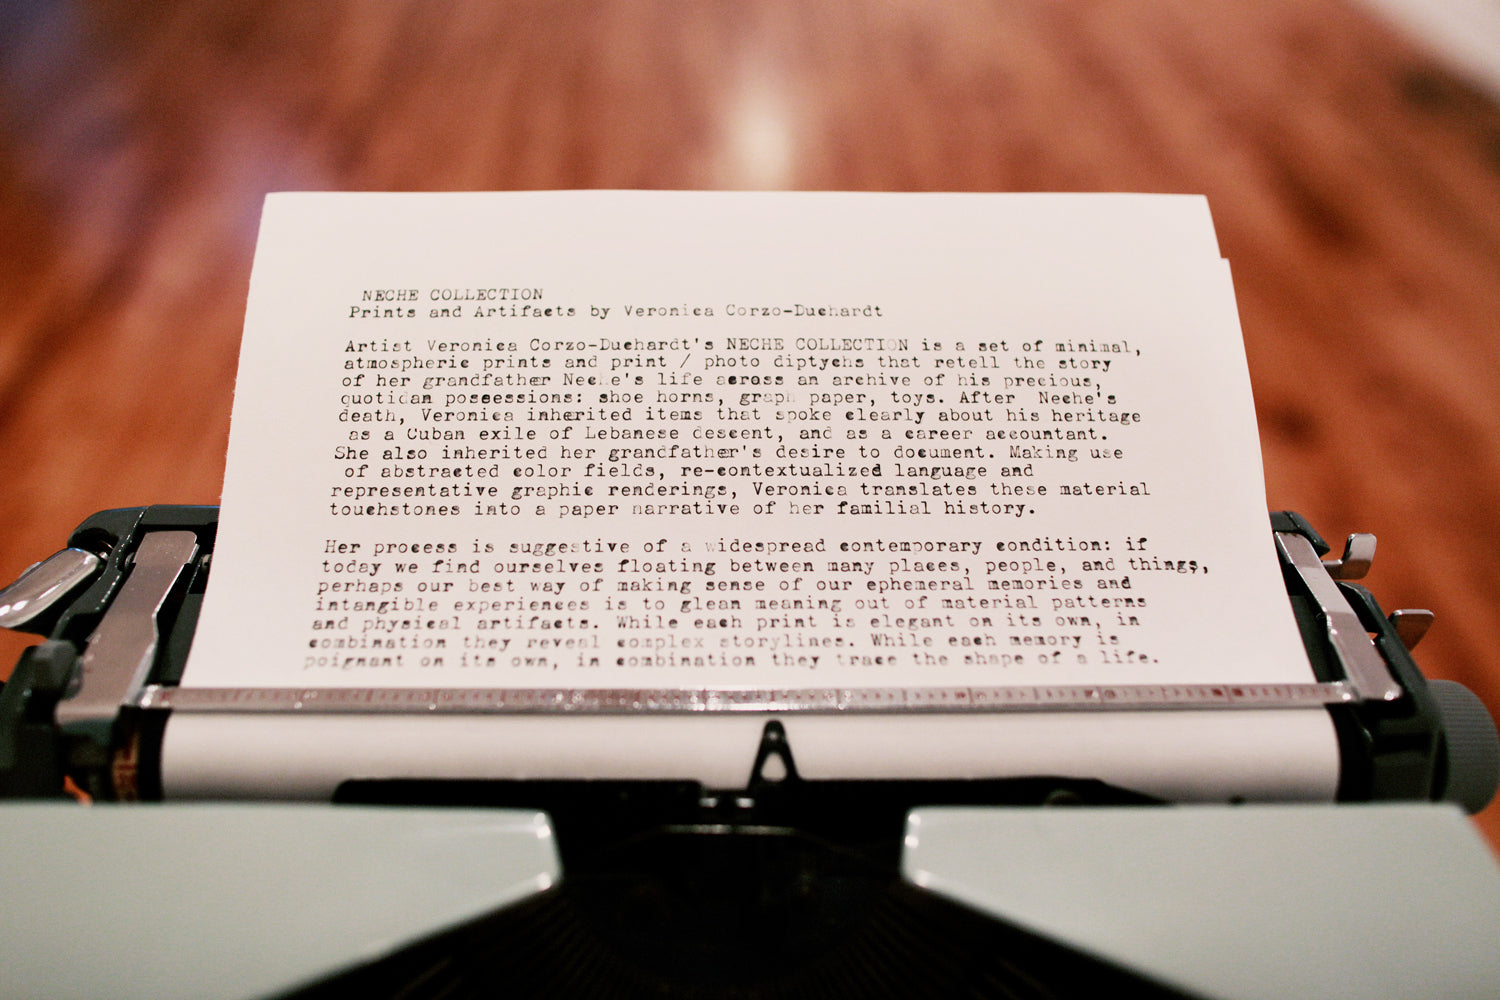 NECHE COLLECTION
Prints and Artifacts by Veronica Corzo-Duchardt
Artist Veronica Corzo-Duchardt's NECHE COLLECTION is a set of minimal,
atmospheric prints and print / photo diptychs that retell the story
of her grandfather Neche's life across an archive of his precious,
quotidan possessions: shoe horns, graph paper, toys. After Neche's
death, Veronica inherited items that spoke clearly about his heritage
as a Cuban exile of Lebanese descent, and as a career accountant.
She also inherited her grandfather's desire to document. Making use
of abstracted color fields, re-contextualized language and
representative graphic renderings, Veronica translates these material
touchstones into a paper narrative of her familial history.
Her process is suggestive of a widespread contemporary condition: if
today we find ourselves floating between many places, people, and things,
perhaps our best way of making sense of our ephemeral memories and
intangible experiences is to glean meaning out of material patterns
and physical artifacts. While each print is elegant on its own, in
combination they reveal complex storylines. While each memory is
poignant on its own, in combination they trace the shape of a life.